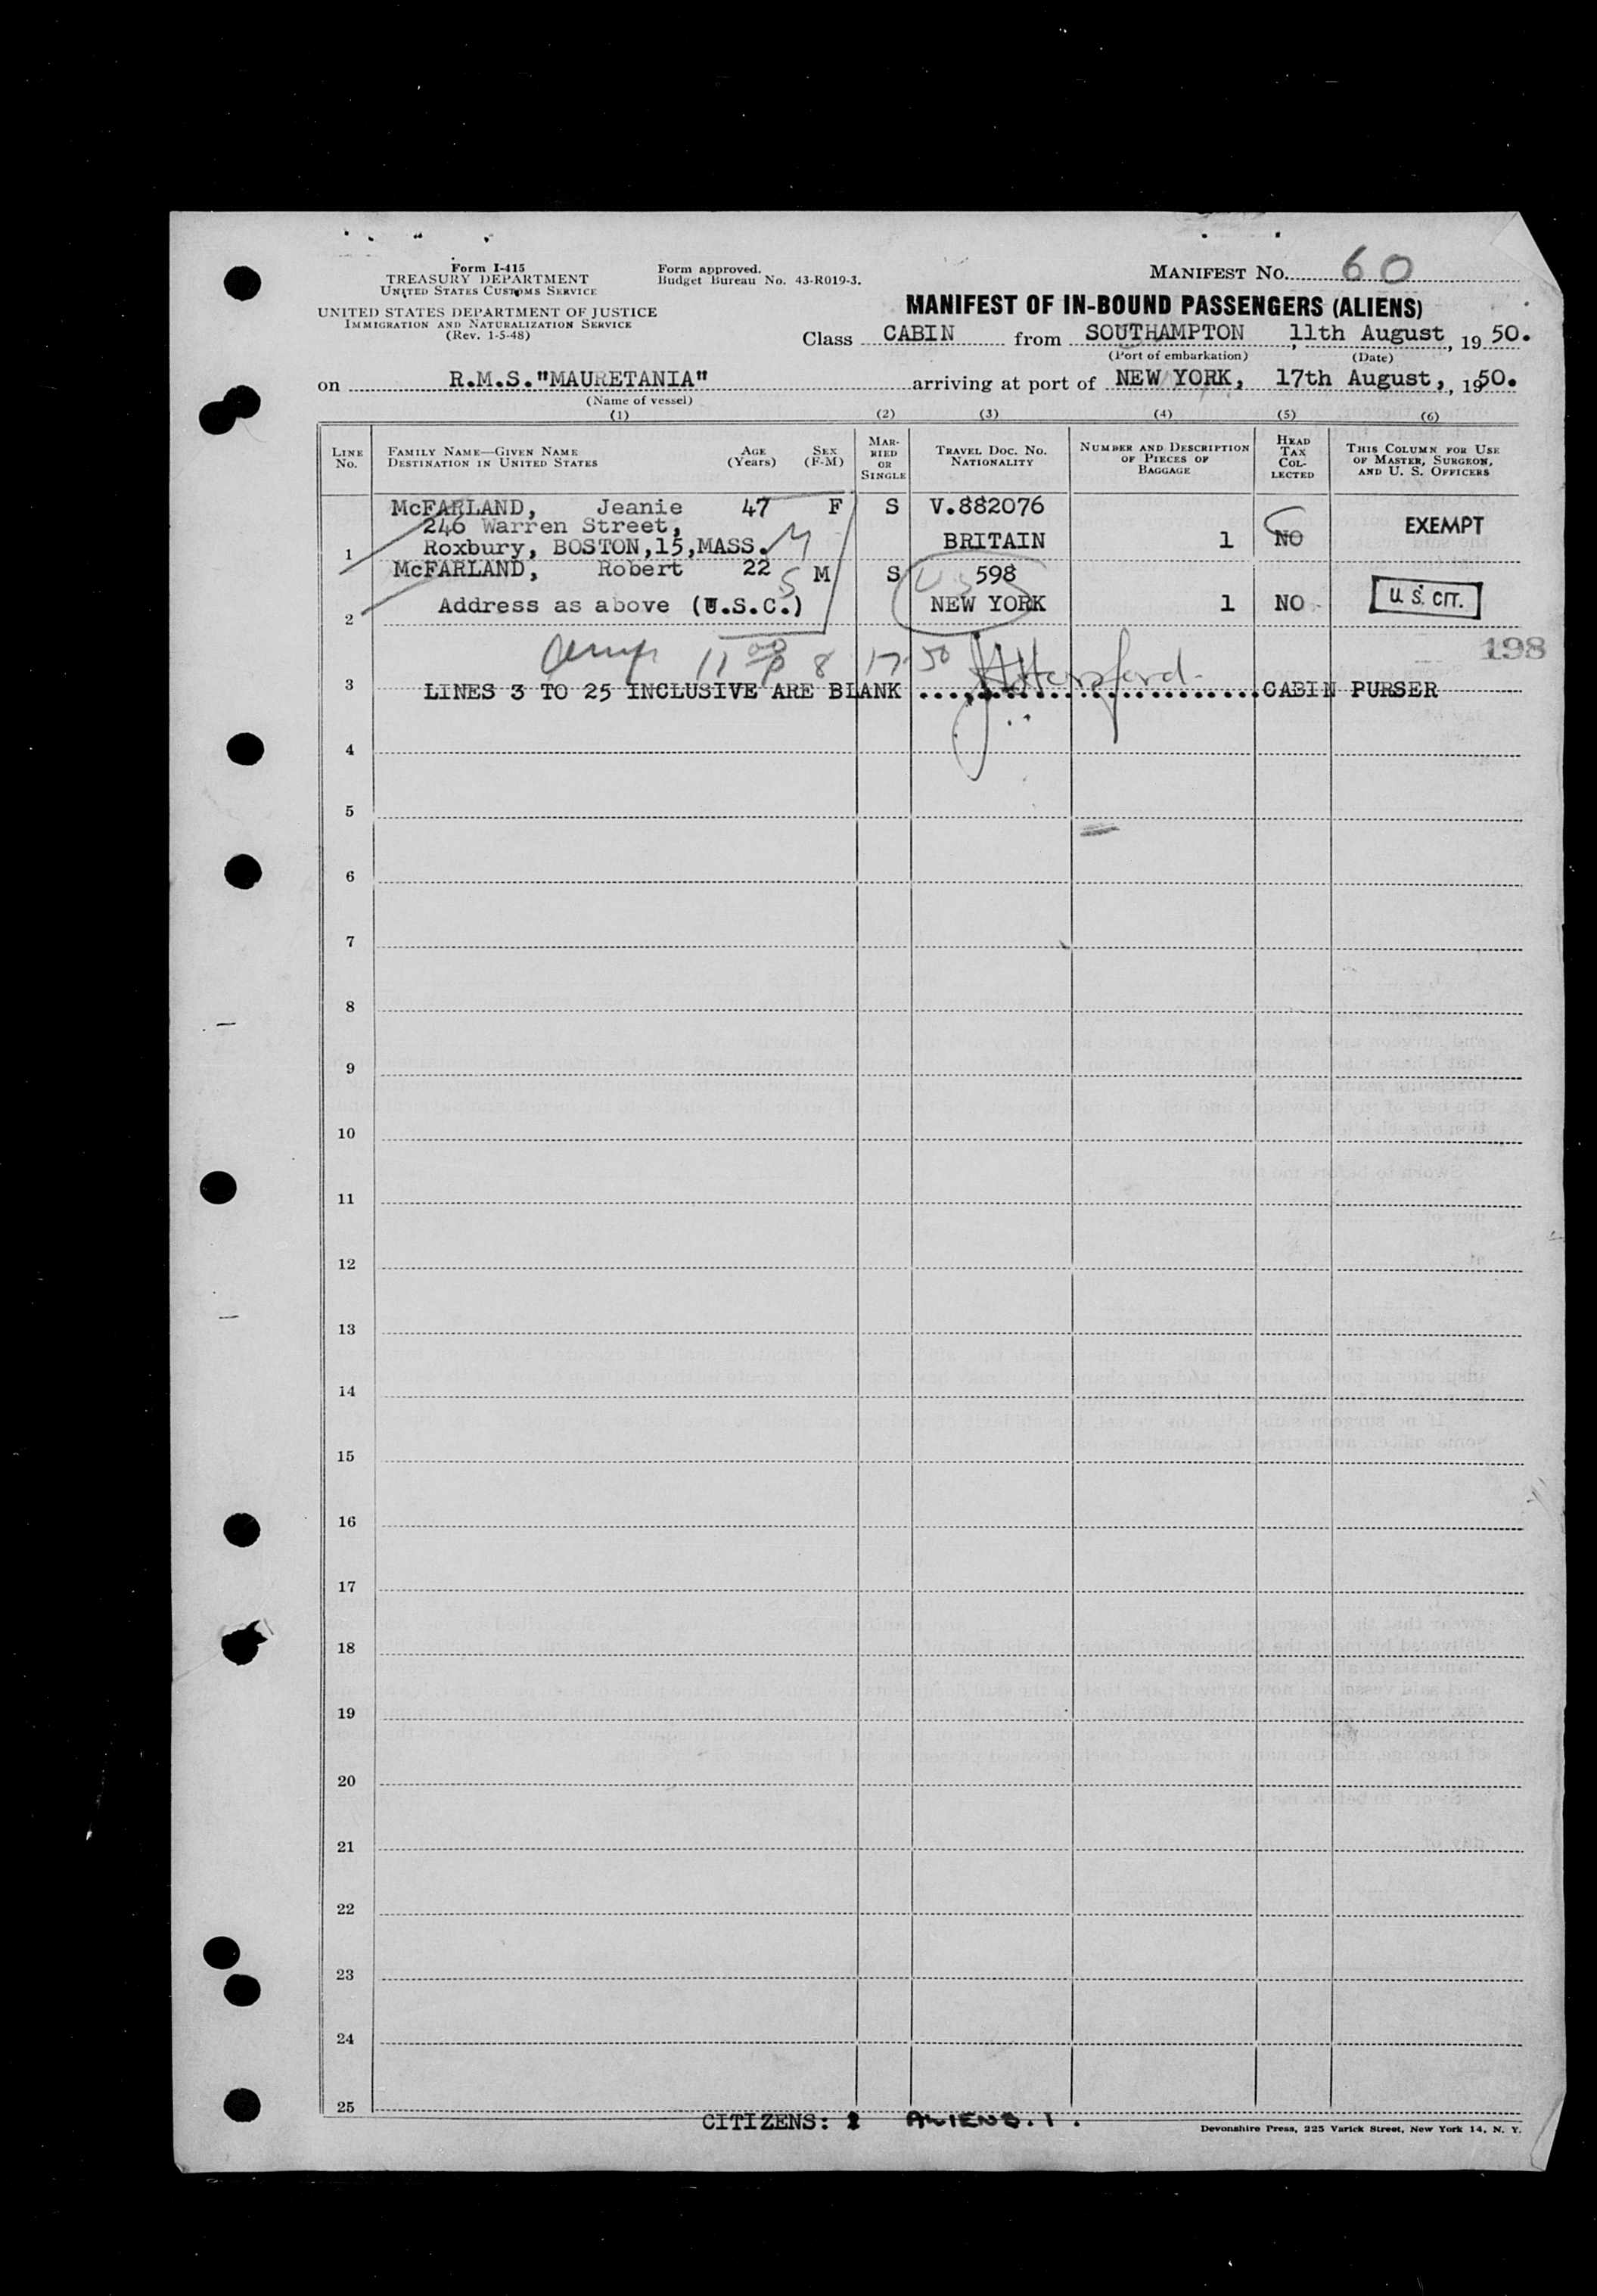 Form I-415
TREASURY DEPARTMENT
UNITED STATES CUSTOMS SERVICE
UNITED STATES DEPARTMENT OF JUSTICE
IMMIGRATION AND NATURALIZATION SERVICE
(Rev. 1-5-48)
Form approved.
Budget Bureau No. 43-R019-3.
MANIFEST NO. 60
MANIFEST OF IN-BOUND PASSENGERS (ALIENS)
Class CABIN from SOUTHAMPTON, 11th August, 19 50.
(Port of embarkation) (Date)
on R.M.S."MAURETANIA" arriving at port of NEW YORK, 17th August, , 1950.
(Name of vessel)
(1) (2) (3) (4) (5) (6)
LINE NO.
FAMILY NAME—GIVEN NAME
DESTINATION IN UNITED STATES
AGE (Years)
SEX (F-M)
MARRIED OR SINGLE
TRAVEL DOC. NO.
NATIONALITY
NUMBER AND DESCRIPTION OF PIECES OF BAGGAGE
HEAD TAX COLLECTED
THIS COLUMN FOR USE OF MASTER, SURGEON, AND U. S. OFFICERS
McFARLAND, Jeanie 47 F S V.882076
246 Warren Street, EXEMPT
1 Roxbury, BOSTON,15,MASS. M BRITAIN 1 NO
McFARLAND, Robert 22 S M S U.S. 598
2 Address as above (U.S.C.) NEW YORK 1 NO U.S. CIT.
198
11 00 8 17 50
3 LINES 3 TO 25 INCLUSIVE ARE BLANK ........................CABIN PURSER
4
5
6
7
8
9
10
11
12
13
14
15
16
17
18
19
20
21
22
23
24
25
CITIZENS: 1 ALIENS. 1.
Devonshire Press, 225 Varick Street, New York 14, N. Y.